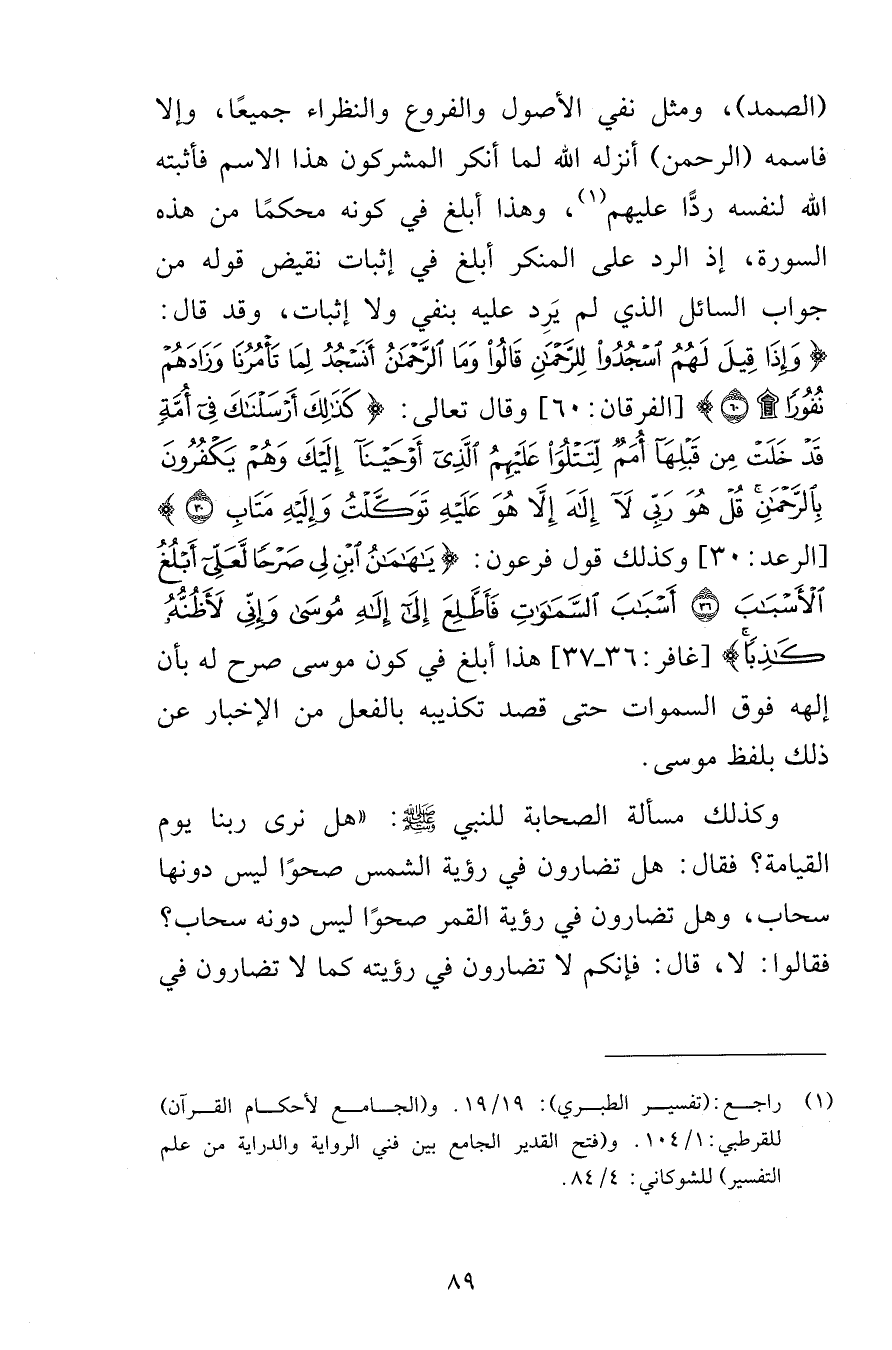 (الصمد)، ومثل نفي الأصول والفروع والنظراء جميعًا، وإلا
فاسمه (الرحمن) أنزله الله لما أنكر المشركون هذا الاسم فأثبته
الله لنفسه ردًّا عليهم(١)، وهذا أبلغ في كونه محكمًا من هذه
السورة، إذ الرد على المنكر أبلغ في إثبات نقيض قوله من
جواب السائل الذي لم يَرِد عليه بنفي ولا إثبات، وقد قال:
﴿ وَإِذَا قِيلَ لَهُمُ ٱسْجُدُوا۟ لِلرَّحْمَٰنِ قَالُوا۟ وَمَا ٱلرَّحْمَٰنُ أَنَسْجُدُ لِمَا تَأْمُرُنَا وَزَادَهُمْ
نُفُورًا ۩ ٦٠ ﴾ [الفرقان: ٦٠] وقال تعالى: ﴿ كَذَٰلِكَ أَرْسَلْنَٰكَ فِىٓ أُمَّةٍ
قَدْ خَلَتْ مِن قَبْلِهَآ أُمَمٌ لِّتَتْلُوَا۟ عَلَيْهِمُ ٱلَّذِىٓ أَوْحَيْنَآ إِلَيْكَ وَهُمْ يَكْفُرُونَ
بِٱلرَّحْمَٰنِ ۚ قُلْ هُوَ رَبِّى لَآ إِلَٰهَ إِلَّا هُوَ عَلَيْهِ تَوَكَّلْتُ وَإِلَيْهِ مَتَابِ ٣٠ ﴾
[الرعد: ٣٠] وكذلك قول فرعون: ﴿ يَٰهَٰمَٰنُ ٱبْنِ لِى صَرْحًا لَّعَلِّىٓ أَبْلُغُ
ٱلْأَسْبَٰبَ ٣٦ أَسْبَٰبَ ٱلسَّمَٰوَٰتِ فَأَطَّلِعَ إِلَىٰٓ إِلَٰهِ مُوسَىٰ وَإِنِّى لَأَظُنُّهُۥ
كَٰذِبًا ۚ﴾ [غافر: ٣٦ـ٣٧] هذا أبلغ في كون موسى صرح له بأن
إلهه فوق السموات حتى قصد تكذيبه بالفعل من الإخبار عن
ذلك بلفظ موسى.
وكذلك مسألة الصحابة للنبي ﷺ: «هل نرى ربنا يوم
القيامة؟ فقال: هل تضارون في رؤية الشمس صحوًا ليس دونها
سحاب، وهل تضارون في رؤية القمر صحوًا ليس دونه سحاب؟
فقالوا: لا، قال: فإنكم لا تضارون في رؤيته كما لا تضارون في
(١) راجع:(تفسير الطبري): ١٩/١٩. و(الجامع لأحكام القرآن)
للقرطبي: ١٠٤/١. و(فتح القدير الجامع بين فني الرواية والدراية من علم
التفسير) للشوكاني: ٨٤/٤.
٨٩